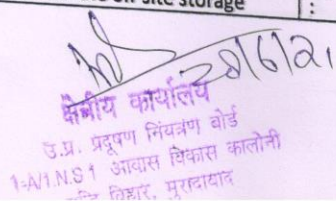 on-site storage :
29/6/21
क्षेत्रीय कार्यालय
उ.प्र. प्रदूषण नियंत्रण बोर्ड
1-A/1.N.S 1 आवास विकास कालोनी
विहार, मुरादाबाद